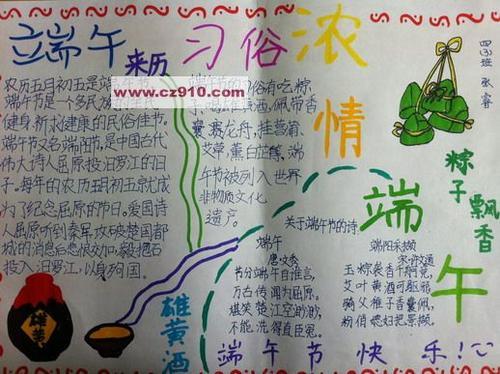 端午
来历
习俗
浓情端午
四(3)班
粽子飘香
www.cz910.com
农历五月初五是端午节,
端午节是一个多民族的全民
健身祈求健康的民俗佳节.
端午节又名端阳节,是中国古代
伟大诗人屈原投汨罗江的日
子。每年的农历五月初五就成
为了纪念屈原的节日。爱国诗
人屈原听到秦军攻破楚国都
城的消息后悲愤交加,毅然
投入汨罗江,以身殉国。
端午节的习俗有吃粽
子,喝雄黄酒,佩带香
囊,赛龙舟,挂菖蒲
艾草,薰白芷等,端
午节被列入世界
非物质文化
遗产。
关于端午节的诗
端午
唐·文秀
节分端午自谁言,
万古传闻为屈原。
堪笑楚江空渺渺,
不能洗得直臣冤。
端阳采撷
玉粽袭香千舸竞,
艾叶黄酒可驱邪。
骑父稚子香囊佩,
粉俏媳妇把景撷。
雄黄
雄黄酒
端午节快乐!